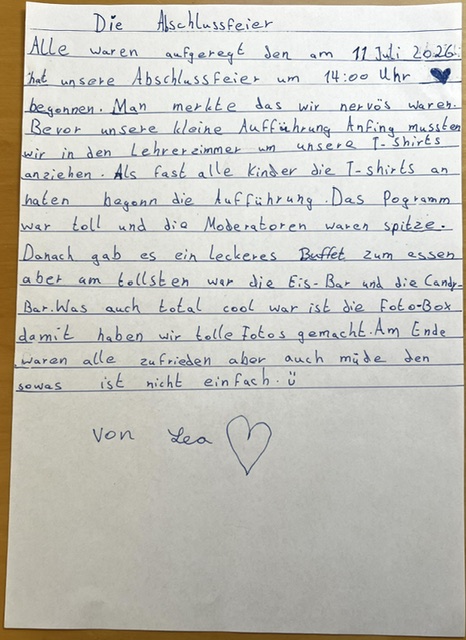 Die Abschlussfeier
Alle waren aufgeregt den am 11 Juli 2026
hat unsere Abschlussfeier um 14:00 Uhr
begonnen. Man merkte das wir nervös waren.
Bevor unsere kleine Aufführung Anfing mussten
wir in den Lehrerzimmer um unsere T-Shirts
anziehen. Als fast alle Kinder die T-shirts an
haten begonn die Aufführung. Das Pogramm
war toll und die Moderatoren waren spitze.
Danach gab es ein leckeres Buffet zum essen
aber am tollsten war die Eis-Bar und die Candy-
Bar. Was auch total cool war ist die Foto-Box
damit haben wir tolle Fotos gemacht. Am Ende
waren alle zufrieden aber auch müde den
sowas ist nicht einfach. ü
von Lea